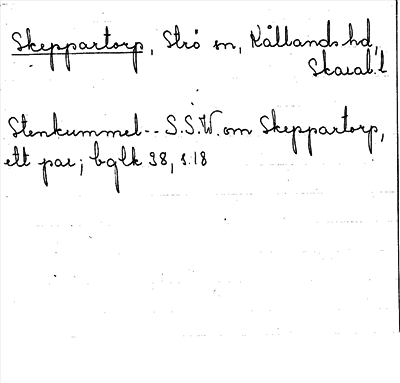 Skeppartorp, Strö sn, Kållands hd,
Skarab.l
Stenkummel-- S.S.W. om Skeppartorp,
ett par; bglk 38, s.18